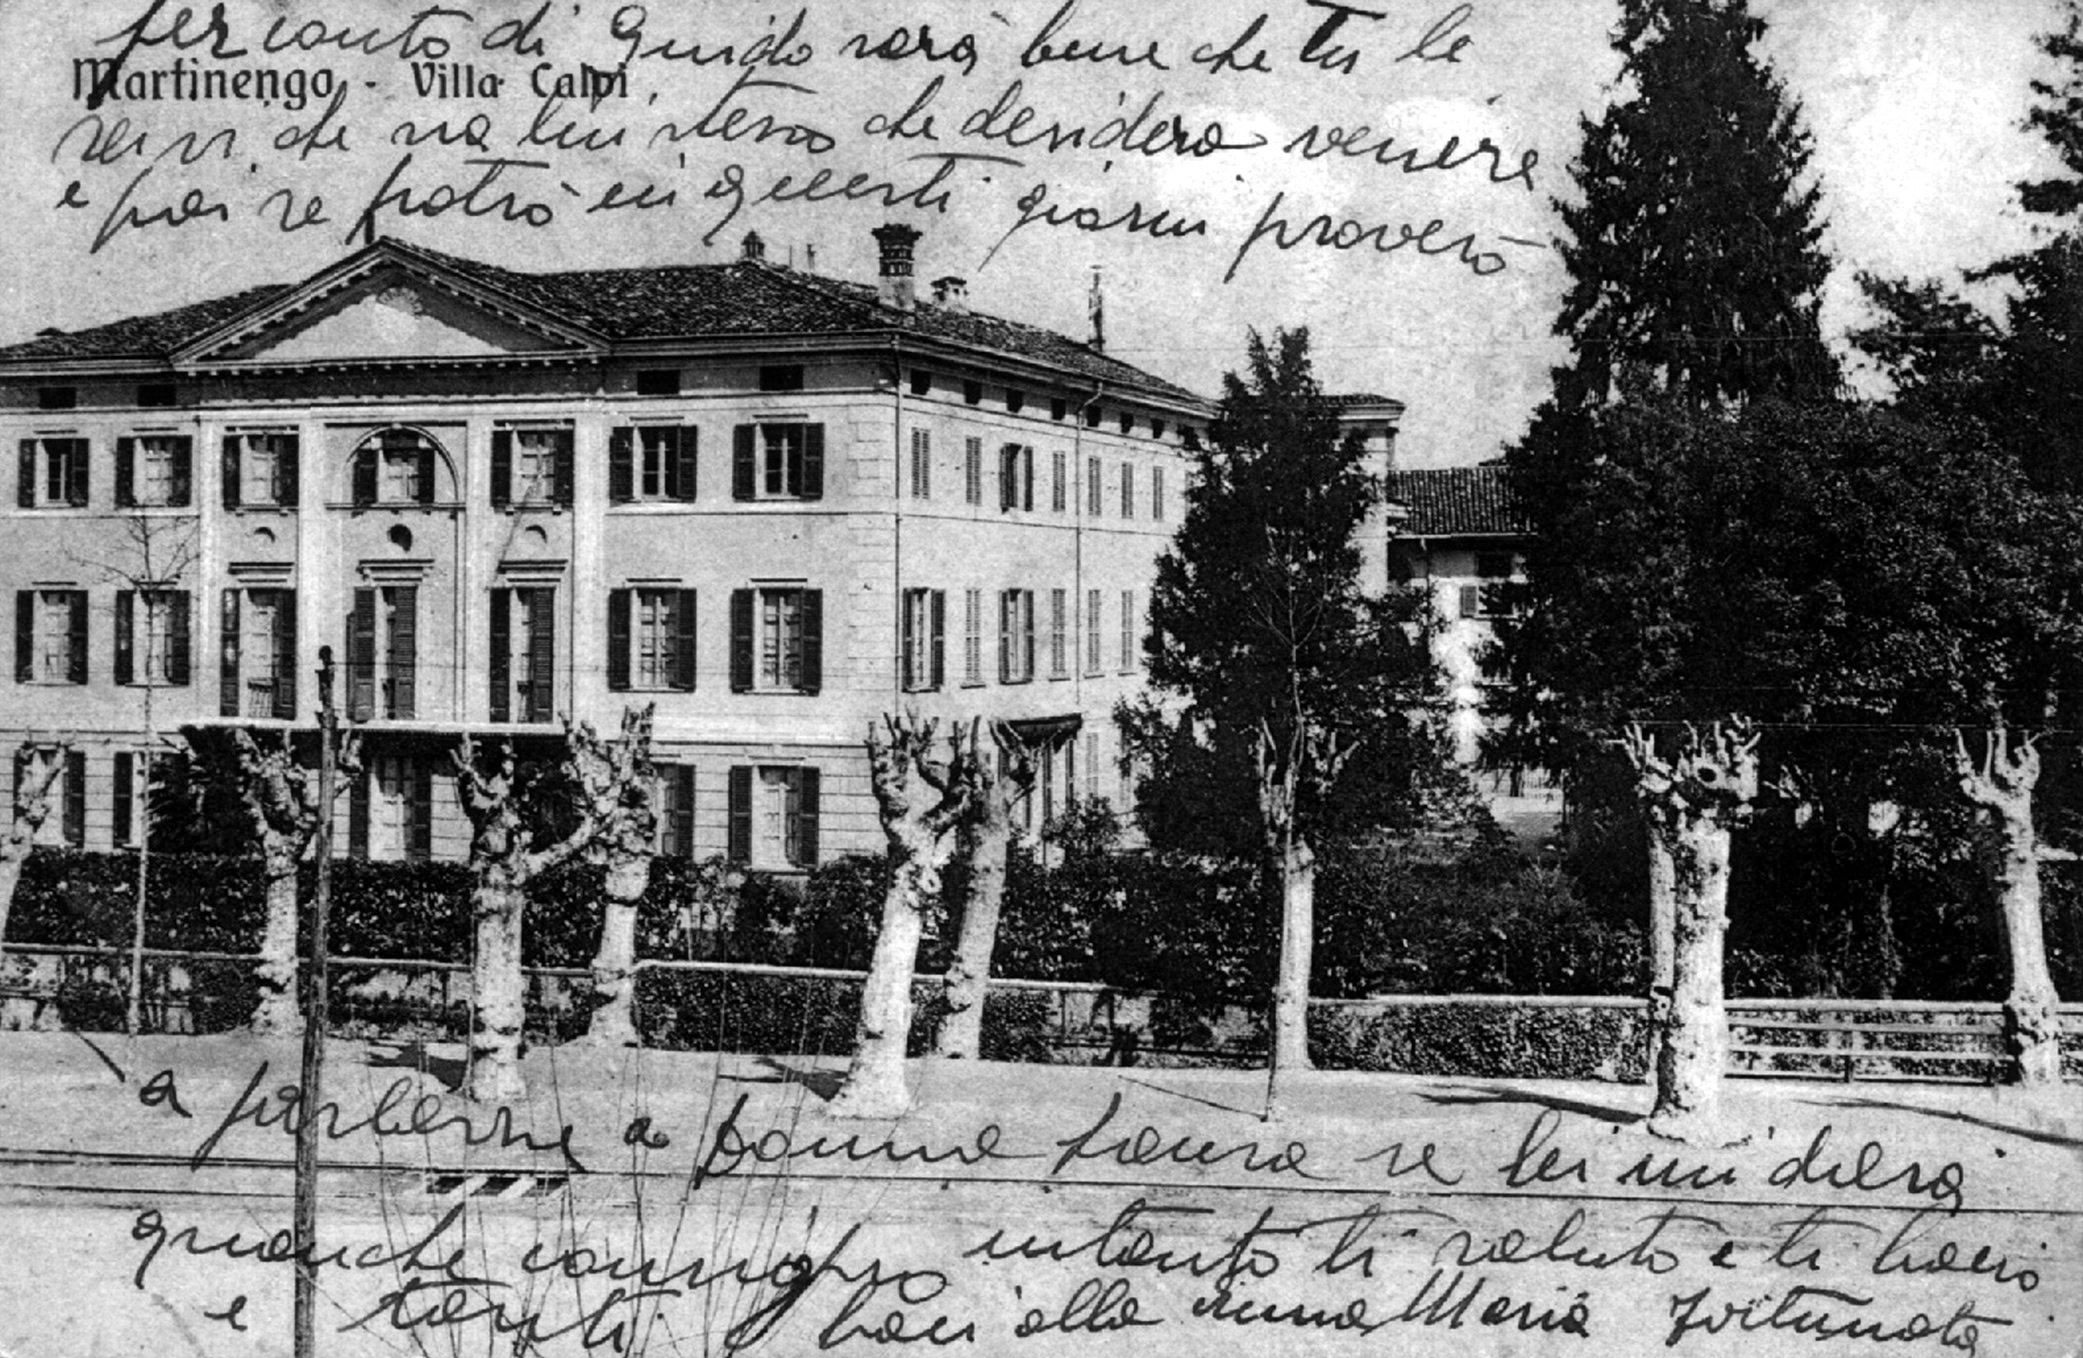 per conto di Guido sarà bene che tu le
Martinengo - Villa Calpi
scrivi che sia lui stesso che desidera venire
e poi se potrò in questi giorni proverò
a parlarne a donna Laura se lei mi darà
qualche consiglio intanto ti saluto e ti bacio
e tanti baci alla Maria Fortunata